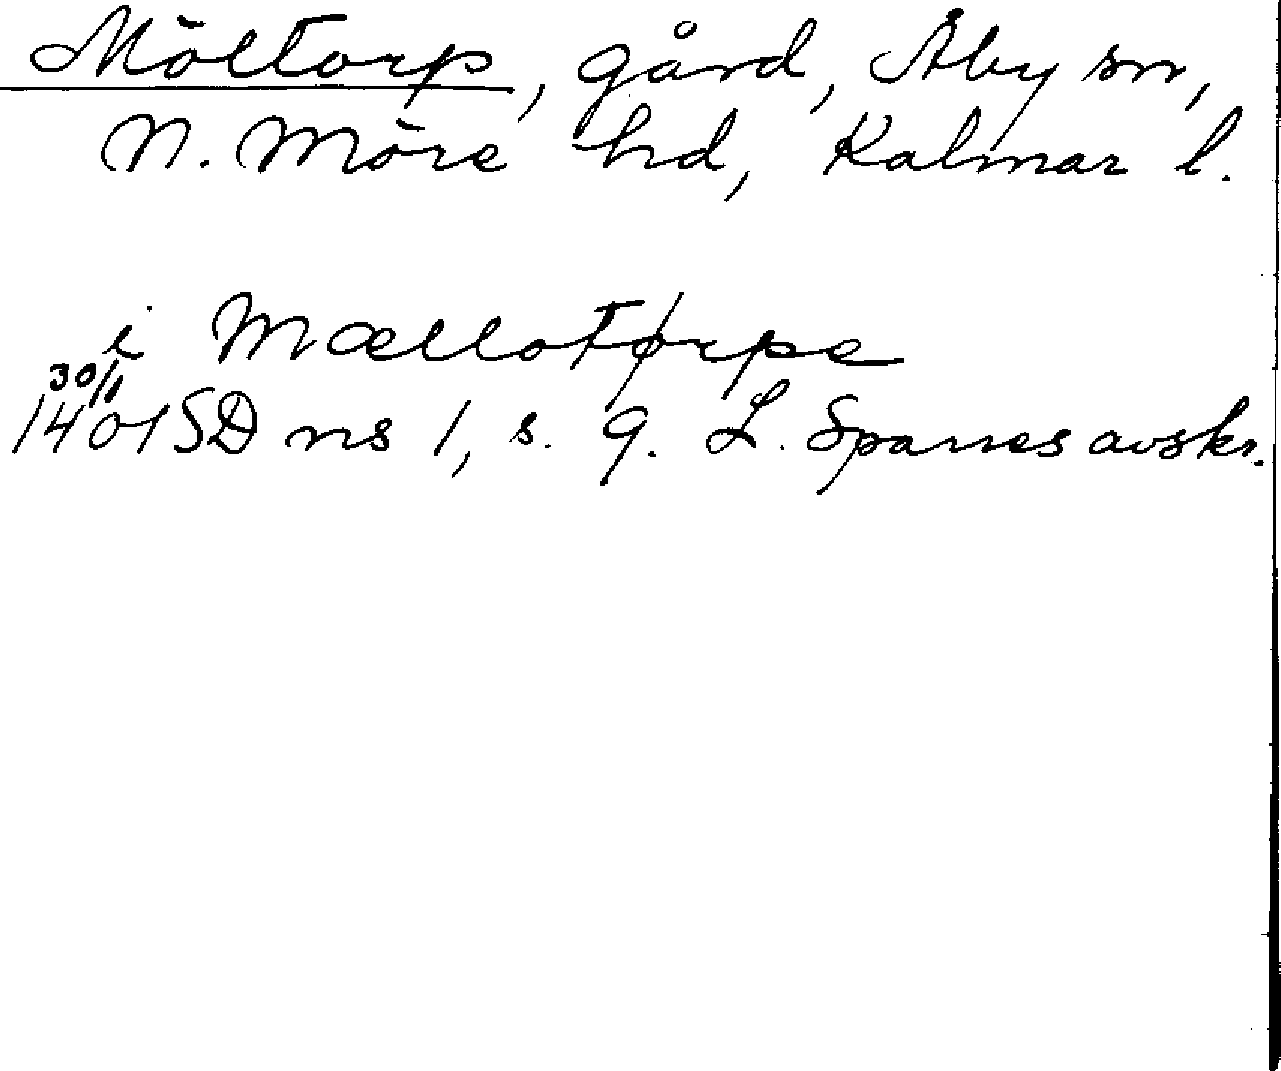 Möltorp, gård, Åby sn,
N. Möre hd, Kalmar l.
i Mællotørpe
30/1
1401 SD ns 1, s. 9. L. Sparres avskr.